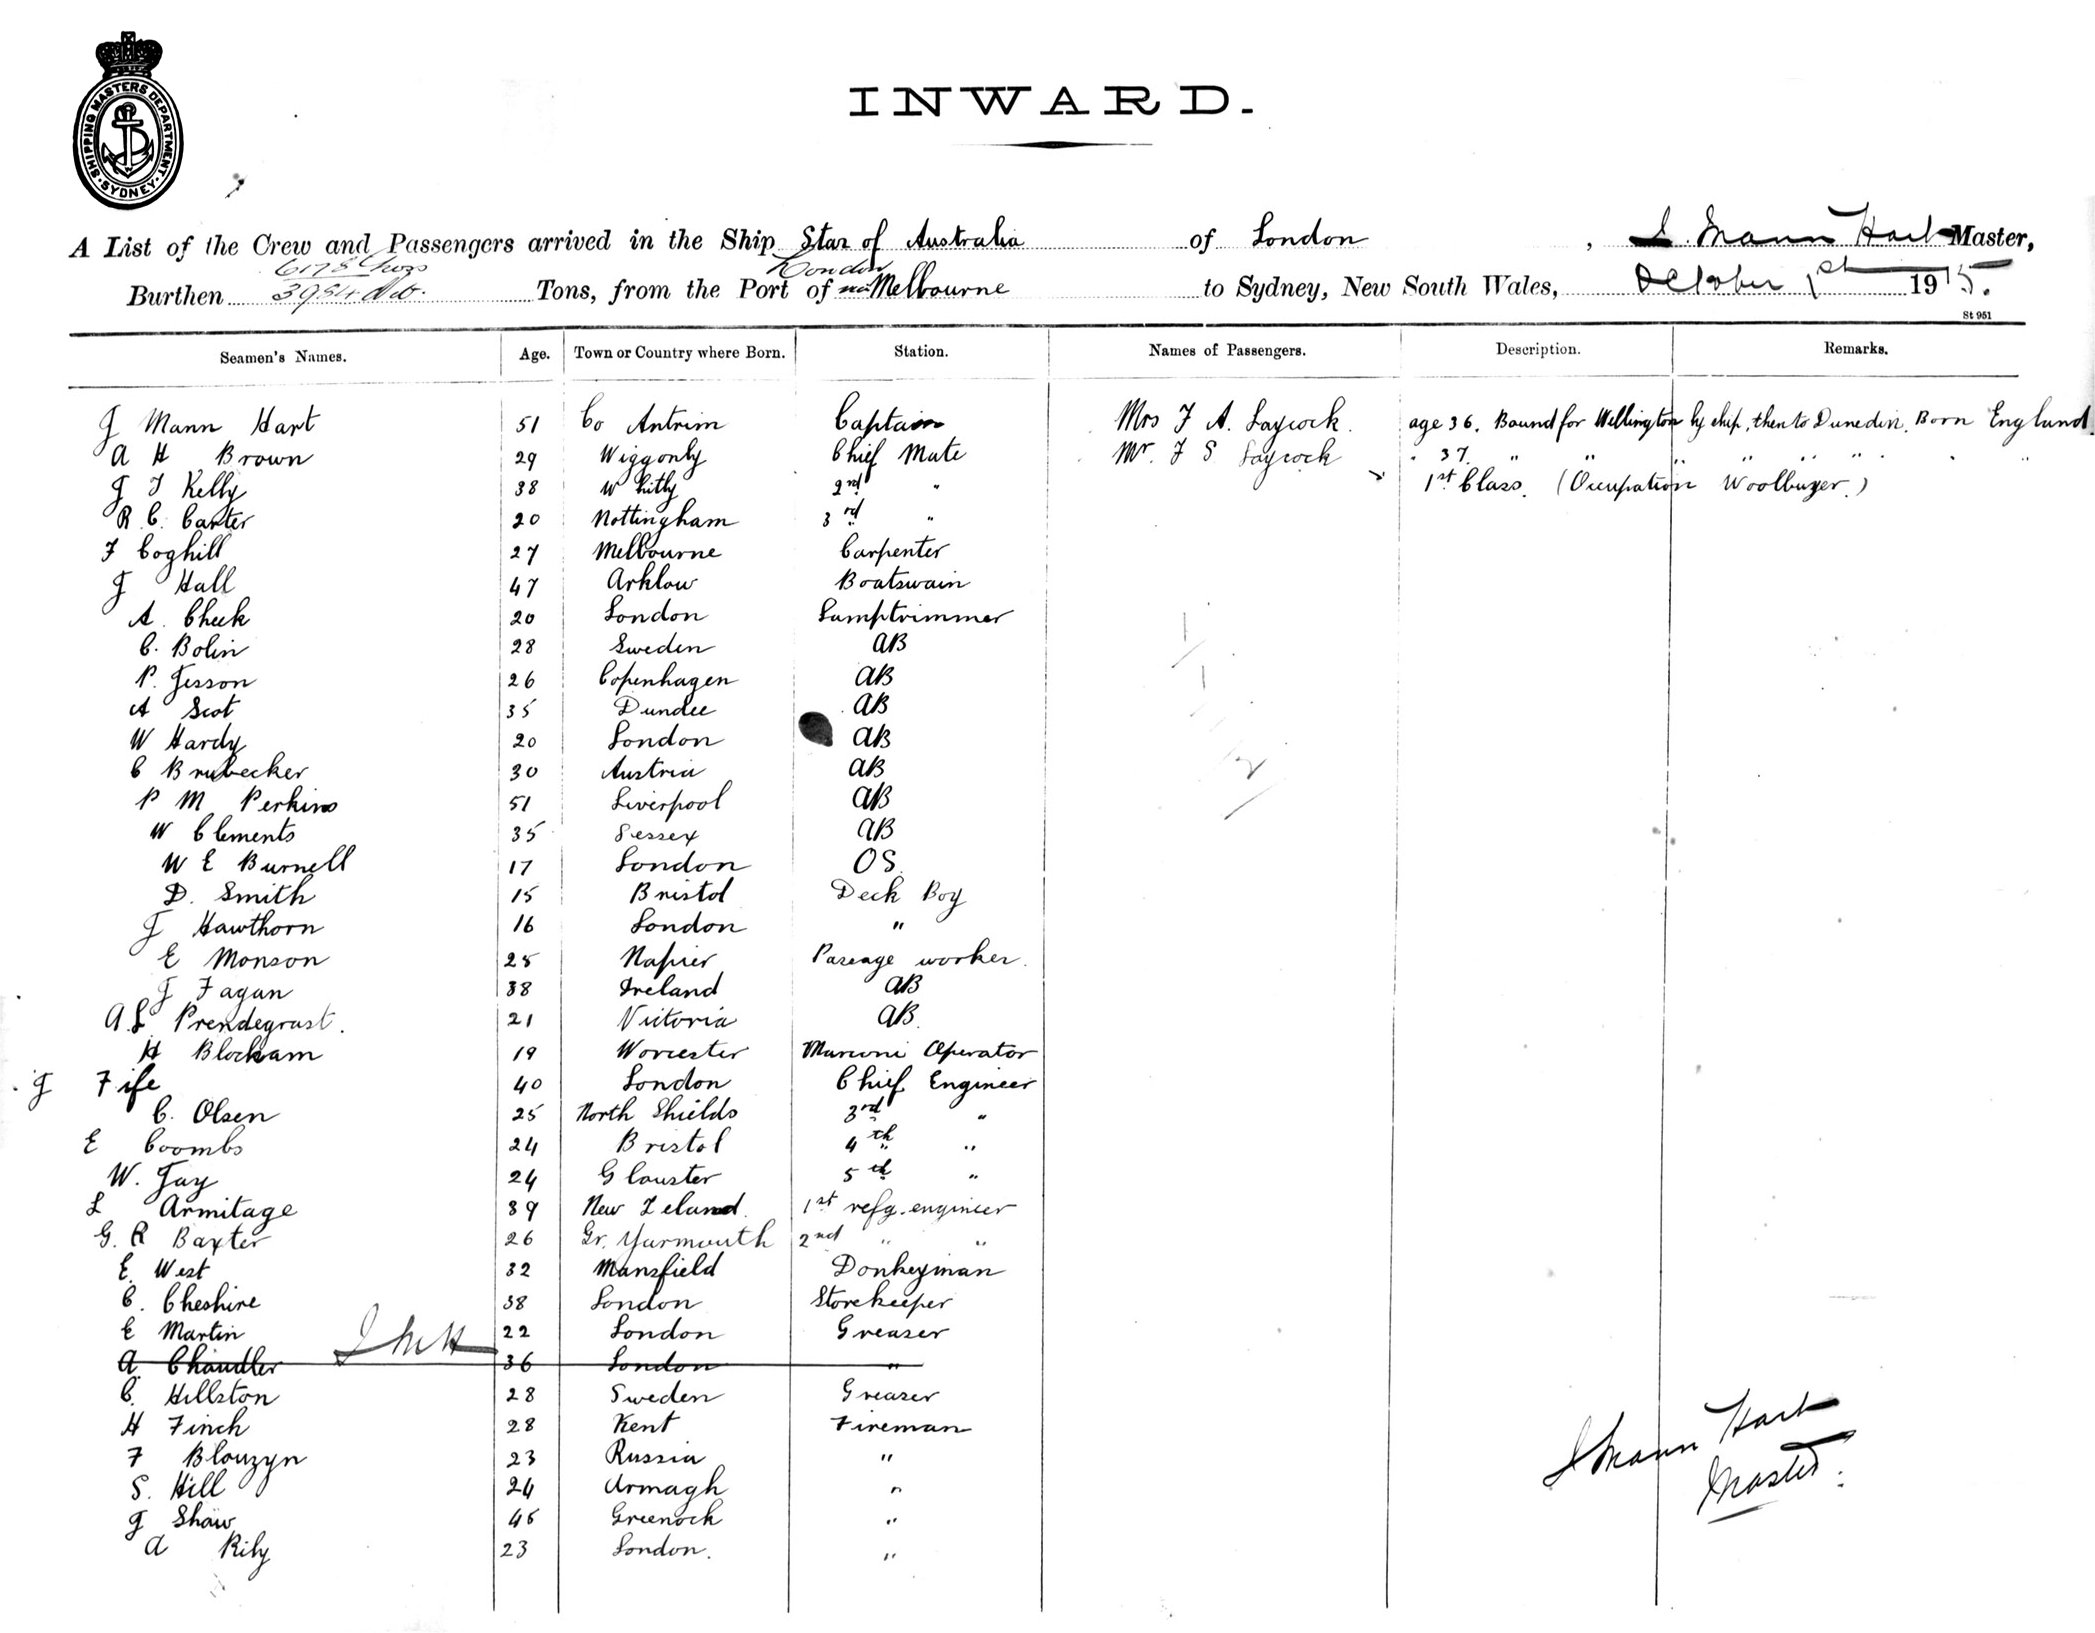 SHIPPING MASTERS DEPARTMENT. SYDNEY.
INWARD.
A List of the Crew and Passengers arrived in the Ship Star of Australia of London, J. Mann Hart Master,
6178 Gross London
Burthen 3984 Net. Tons, from the Port of Melbourne to Sydney, New South Wales, October 1st 1915.
St 951
Seamen's Names. Age. Town or Country where Born. Station. Names of Passengers. Description. Remarks.
J Mann Hart 51 Co Antrim Captain Mrs F A. Laycock. age 36. Bound for Wellington by ship, then to Dunedin. Born England
A H Brown 29 Wiggonly Chief Mate Mr. F S Laycock " 37. " " " " " "
J T Kelly 38 Whitly 2nd " 1st Class. (Occupation Woolbuyer.)
R. C. Carter 20 Nottingham 3rd "
F Coghill 27 Melbourne Carpenter
J Hall 47 Arklow Boatswain
A. Cheek 20 London Lamptrimmer
C. Bolin 28 Sweden AB
P. Jesson 26 Copenhagen AB
A Scot 35 Dundee AB
W Hardy 20 London AB
C Brubecker 30 Austria AB
P M Perkins 51 Liverpool AB
W Clements 35 Sessex AB
W E Burnell 17 London OS.
D. Smith 15 Bristol Deck Boy
J Hawthorn 16 London "
E Monson 25 Napier Passage worker.
J Fagan 38 Ireland AB
A. L Prendegrast. 21 Victoria AB.
H Blockam 19 Worcester Marconi Operator
J Fife 40 London Chief Engineer
C. Olsen 25 North Shields 3rd "
E Coombs 24 Bristol 4th "
W. Jay 24 Glouster 5th "
L Armitage 39 New Zeland. 1st refg. engineer
G. R Baxter 26 Gr. Yarmouth 2nd " "
E. West 32 Mansfield Donkeyman
C. Cheshire 38 London Storekeeper
E Martin 22 London Greaser
A. Chandler JMH 36 London "
C. Hillston 28 Sweden Greaser
H Finch 28 Kent Fireman
F Blouzyn 23 Russia "
S. Hill 24 Armagh "
J Shaw 46 Greenock "
A Rily 23 London. "
J Mann Hart
Master.